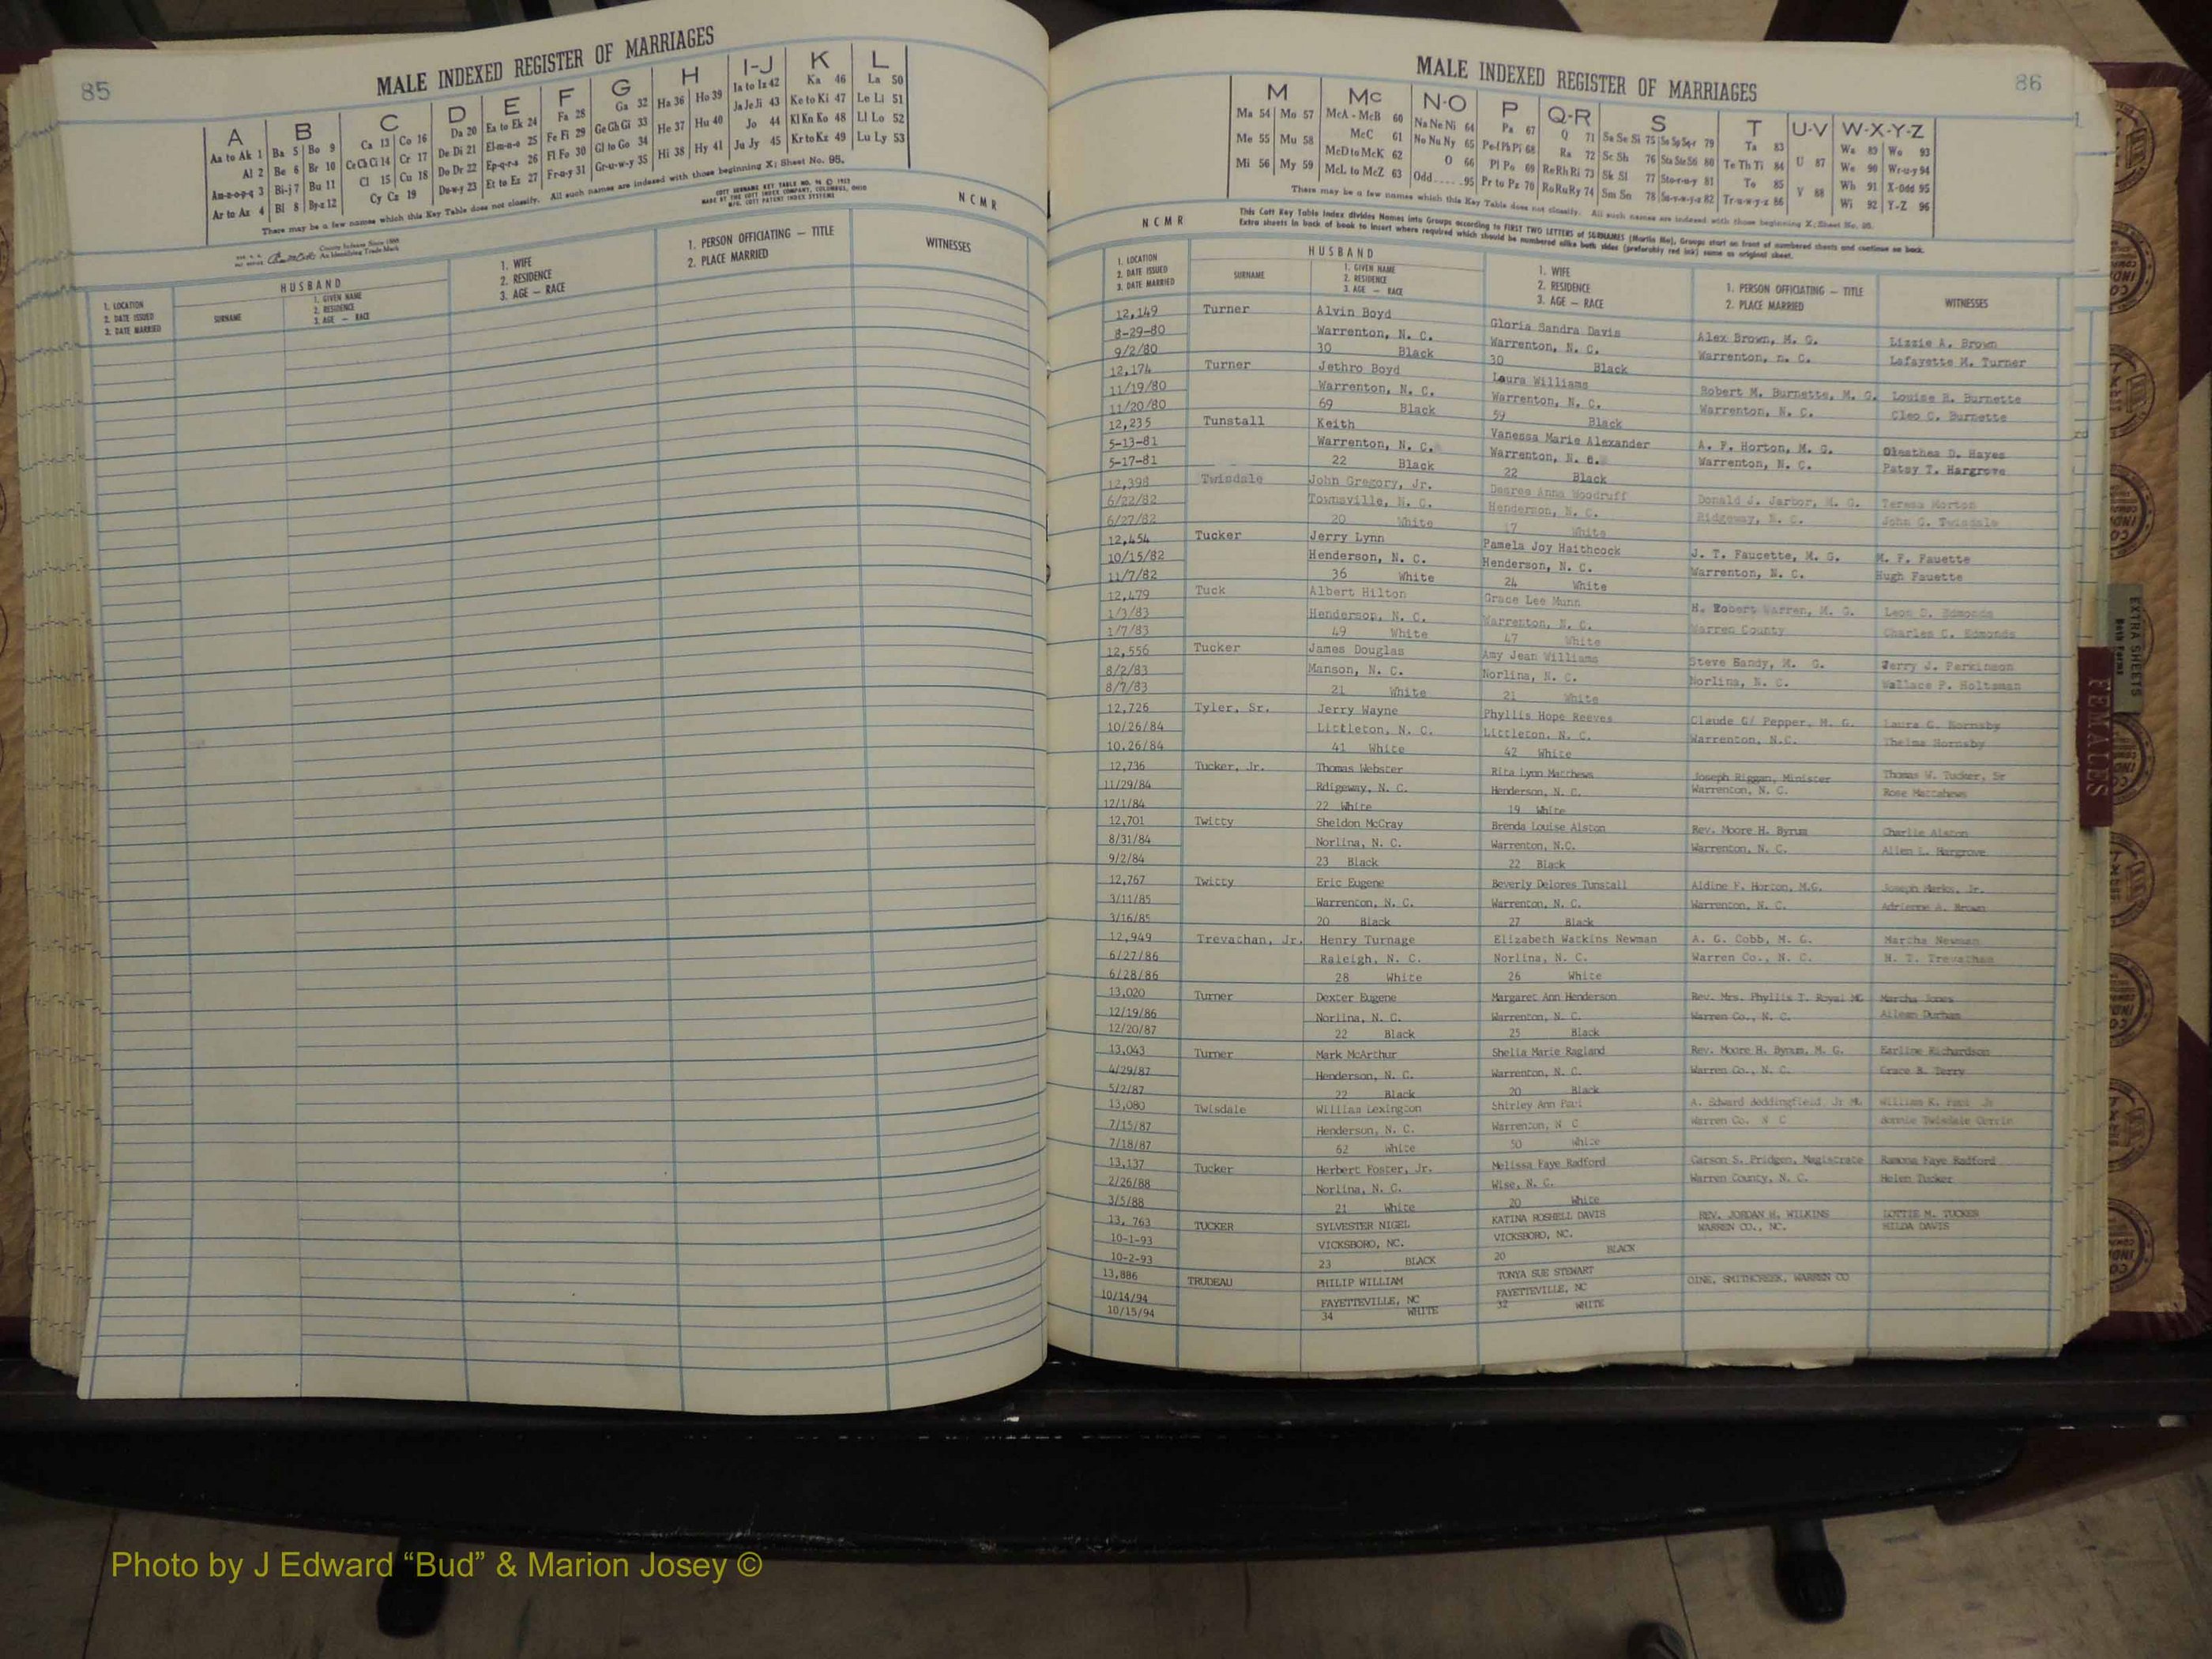 85
MALE INDEXED REGISTER OF MARRIAGES
A B C D E F G H I-J K L
Aa to Ak 1 Ba 5 Bo 9 Ca 13 Co 16 Da 20 Ea to Ek 24 Fa 28 Ga 32 Ha 36 Ho 39 Ia to Iz 42 Ka 46 La 50
Al 2 Be 6 Br 10 Ce Ch Ci 14 Cr 17 De Di 21 El-m-n-o 25 Fe Fi 29 Ge Gh Gi 33 He 37 Hu 40 Ja Je Ji 43 Ke to Ki 47 Le Li 51
Am-n-o-p-q 3 Bi-j 7 Bu 11 Cl 15 Cu 18 Do Dr 22 Ep-q-r-s 26 Fl Fo 30 Gl to Go 34 Hi 38 Hy 41 Jo 44 Kl Kn Ko 48 Ll Lo 52
Ar to Az 4 Bl 8 By-z 12 Cy Cz 19 Du-w-y 23 Et to Ez 27 Fr-u-y 31 Gr-u-w-y 35 Ju Jy 45 Kr to Kz 49 Lu Ly 53
There may be a few names which this Key Table does not classify. All such names are indexed with those beginning X; Sheet No. 95.
N C M R
HUSBAND
1. LOCATION
2. DATE ISSUED
3. DATE MARRIED
SURNAME
1. GIVEN NAME
2. RESIDENCE
3. AGE — RACE
1. WIFE
2. RESIDENCE
3. AGE — RACE
1. PERSON OFFICIATING — TITLE
2. PLACE MARRIED
WITNESSES
86
MALE INDEXED REGISTER OF MARRIAGES
M Mc N-O P Q-R S T U-V W-X-Y-Z
Ma 54 Mo 57 McA - McB 60 Na Ne Ni 64 Pa 67 Q 71 Sa Se Si 75 Sn Sp Sq-r 79 Ta 83 Wa 89 Wo 93
Me 55 Mu 58 McC 61 No Nu Ny 65 Pe-f Ph Pi 68 Ra 72 Sc Sh 76 Sta Ste Sti 80 Te Th Ti 84 U 87 We 90 Wr-u-y 94
Mi 56 My 59 McD to McK 62 O 66 Pl Po 69 Re Rh Ri 73 Sk Sl 77 Sto-r-u-y 81 To 85 Wh 91 X-Odd 95
McL to McZ 63 Odd 95 Pr to Pz 70 Ro Ru Ry 74 Sm So 78 Su-v-w-y-z 82 Tr-u-w-y-z 86 V 88 Wi 92 Y-Z 96
There may be a few names which this Key Table does not classify. All such names are indexed with those beginning X; Sheet No. 95.
This Cott Key Table Index divides Names into Groups according to FIRST TWO LETTERS of SURNAMES (Martin Ma), Groups start on front of numbered sheets and continue on back.
Extra sheets in back of book to insert where required which should be numbered alike both sides (preferably red ink) same as original sheet.
N C M R
HUSBAND
1. LOCATION
2. DATE ISSUED
3. DATE MARRIED
SURNAME
1. GIVEN NAME
2. RESIDENCE
3. AGE — RACE
1. WIFE
2. RESIDENCE
3. AGE — RACE
1. PERSON OFFICIATING — TITLE
2. PLACE MARRIED
WITNESSES
12,149 Turner Alvin Boyd Gloria Sandra Davis Alex Brown, M. G. Lizzie A. Brown
8-29-80 Warrenton, N. C. Warrenton, N. C. Warrenton, n. C. Lafayette M. Turner
9/2/80 30 Black 30 Black
12,174 Turner Jethro Boyd Laura Williams Robert M. Burnette, M. G. Louise R. Burnette
11/19/80 Warrenton, N. C. Warrenton, N. C. Warrenton, N. C. Cleo C. Burnette
11/20/80 69 Black 59 Black
12,235 Tunstall Keith Vanessa Marie Alexander A. F. Horton, M. G. Oleathea D. Hayes
5-13-81 Warrenton, N. C. Warrenton, N. C. Warrenton, N. C. Patsy T. Hargrove
5-17-81 22 Black 22 Black
12,398 Twisdale John Gregory, Jr. Desree Anna Woodruff Donald J. Jarbor, M. G. Teresa Morton
6/22/82 Townsville, N. C. Henderson, N. C. Ridgeway, N. C. John G. Twisdale
6/27/82 20 White 17 White
12,454 Tucker Jerry Lynn Pamela Joy Haithcock J. T. Faucette, M. G. M. F. Fauette
10/15/82 Henderson, N. C. Henderson, N. C. Warrenton, N. C. Hugh Fauette
11/7/82 36 White 24 White
12,479 Tuck Albert Hilton Grace Lee Munn H. Robert Warren, M. G. Leon D. Edmonds
1/3/83 Henderson, N. C. Warrenton, N. C. Warren County Charles C. Edmonds
1/7/83 49 White 47 White
12,556 Tucker James Douglas Amy Jean Williams Steve Handy, M. G. Jerry J. Perkinson
8/2/83 Manson, N. C. Norlina, N. C. Norlina, N. C. Wallace P. Holtzman
8/7/83 21 White 21 White
12,726 Tyler, Sr. Jerry Wayne Phyllis Hope Reeves Claude G/ Pepper, M. G. Laura G. Hornsby
10/26/84 Littleton, N. C. Littleton, N. C. Warrenton, N.C. Thelma Hornsby
10.26/84 41 White 42 White
12,736 Tucker, Jr. Thomas Webster Rita Lynn Matthews Joseph Riggan, Minister Thomas W. Tucker, Sr
11/29/84 Rdigeway, N. C. Henderson, N. C. Warrenton, N. C. Rose Mattahews
12/1/84 22 White 19 White
12,701 Twitty Sheldon McCray Brenda Louise Alston Rev. Moore H. Byrum Charlie Alston
8/31/84 Norlina, N. C. Warrenton, N.C. Warrenton, N. C. Allen L. Hargrove
9/2/84 23 Black 22 Black
12,767 Twitty Eric Eugene Beverly Delores Tunstall Aldine F. Horton, M.G. Joseph Marks, Jr.
3/11/85 Warrenton, N. C. Warrenton, N. C. Warrenton, N. C. Adrienne A. Brown
3/16/85 20 Black 27 Black
12,949 Trevathan, Jr. Henry Turnage Elizabeth Watkins Newman A. G. Cobb, M. G. Martha Newman
6/27/86 Raleigh, N. C. Norlina, N. C. Warren Co., N. C. H. T. Trevathan
6/28/86 28 White 26 White
13,020 Turner Dexter Eugene Margaret Ann Henderson Rev. Mrs. Phyllis T. Royal MG Martha Jones
12/19/86 Norlina, N. C. Warrenton, N. C. Warren Co., N. C. Aileen Durham
12/20/87 22 Black 25 Black
13,043 Turner Mark McArthur Sheila Marie Ragland Rev. Moore H. Byrum, M. G. Earline Richardson
4/29/87 Henderson, N. C. Warrenton, N. C. Warren Co., N. C. Grace B. Terry
5/2/87 22 Black 20 Black
13,080 Twisdale William Lexington Shirley Ann A. Edward Beddingfield Jr MG William K. Jr
7/15/87 Henderson, N. C. Warrenton, N C Warren Co. N C Bonnie Twisdale
7/18/87 62 White 50 White
13,137 Tucker Herbert Foster, Jr. Melissa Faye Radford Carson S. Pridgen, Magistrate Ramona Faye Radford
2/26/88 Norlina, N. C. Wise, N. C. Warren County, N. C. Helen Tucker
3/5/88 21 White 20 White
13, 763 TUCKER SYLVESTER NIGEL KATINA ROSHELL DAVIS REV. JORDAN H. WILKINS LOTTIE M. TUCKER
10-1-93 VICKSBORO, NC. VICKSBORO, NC. WARREN CO., NC. HILDA DAVIS
10-2-93 23 BLACK 20 BLACK
13,886 TRUDEAU PHILIP WILLIAM TONYA SUE STEWART OINE, SMITHCREEK, WARREN CO
10/14/94 FAYETTEVILLE, NC FAYETTEVILLE, NC
10/15/94 34 WHITE 32 WHITE
EXTRA SHEETS
Both Forms
FEMALES
Photo by J Edward “Bud” & Marion Josey ©